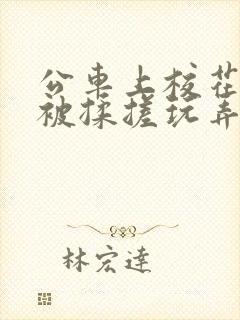 公車上校花
被揉搓玩弄
林宏達